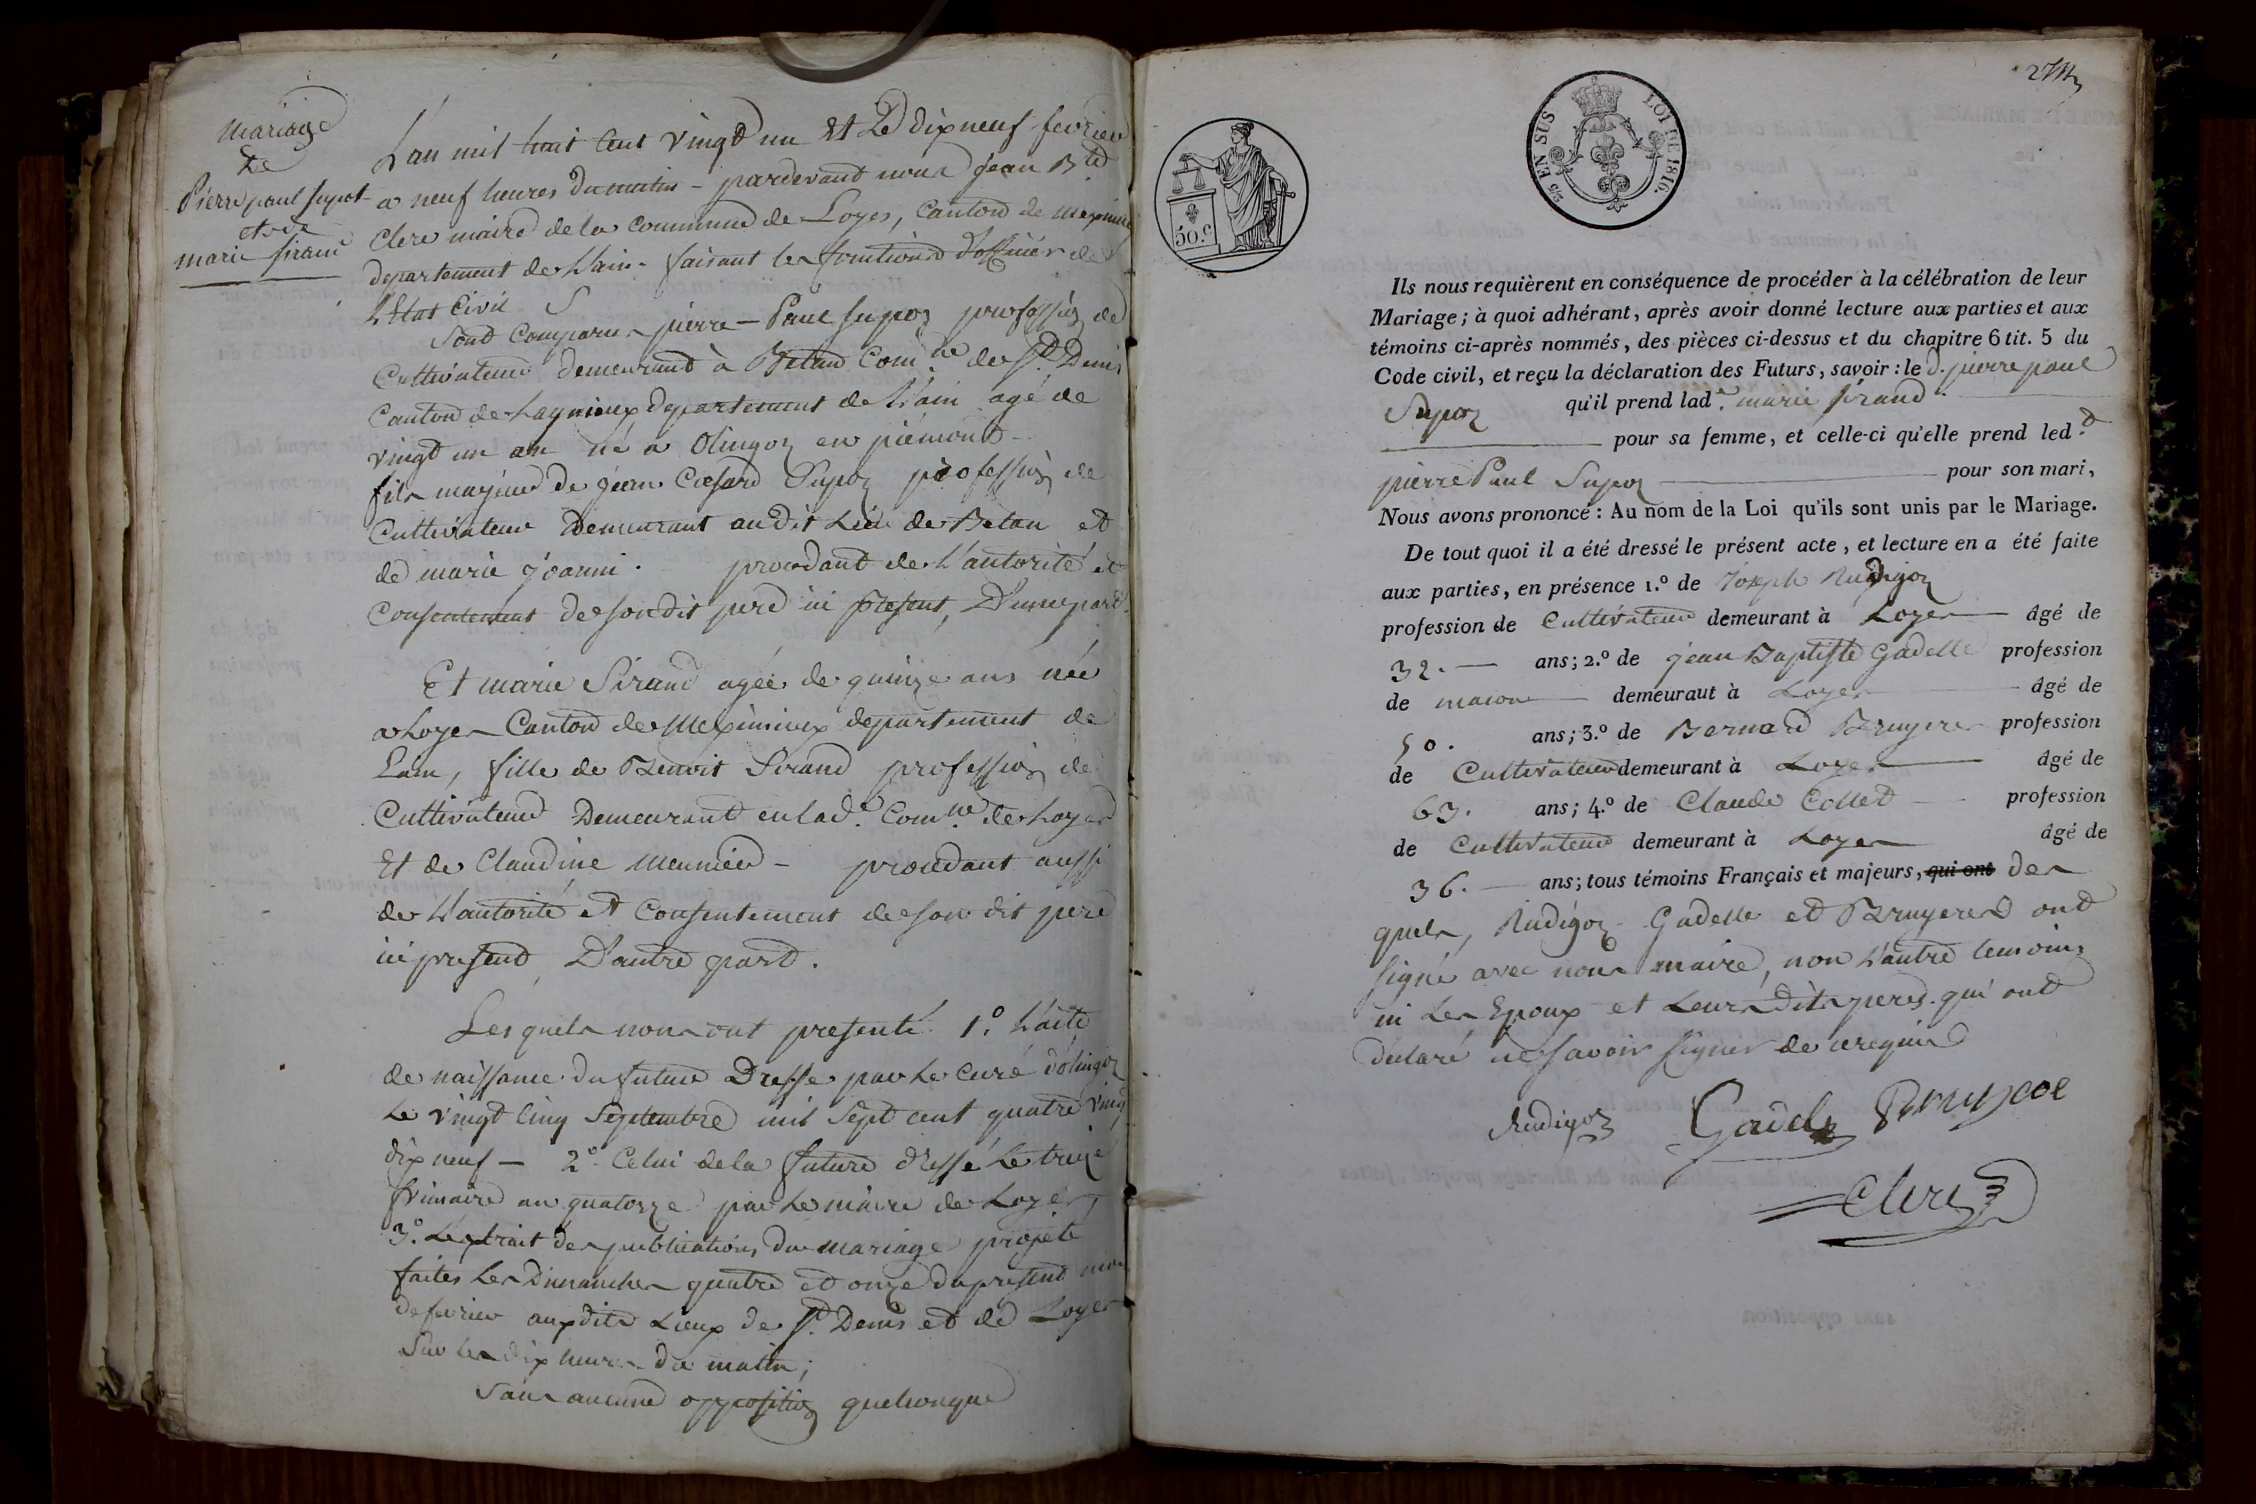 mariage
de
Pierre paul Supot
et de
marie Sirand
L'an mil huit cent vingt un Et Le dix neuf fevrier
a neuf heures du matin - pardevant nous Jean Bte
Clere maire de la Commune de Loyes, Canton de meximieux
departement de L'ain - faisant les fonctions d'officier de
L'Etat Civil
Sont Comparus pierre - Paul Supoz profession de
Cultivateur demeurant à Betan Comne de St. Denis
Canton de Lagnieux departement de L'ain agé de
vingt un an né a Olingoz en piémont -
fils majeur de jean Cæsard Supoz profession de
Cultivateur Demeurant audit Lieu de Betan et
de marie joanni . procedant de L'autorité et
Consentement de son dit pere ici present, D'une part.
Et marie Sirand agée de quinze ans née
a Loyes Canton de Meximieux departement de
Lain, fille de Benoit Sirand profession de
Cultivateur Demeurant en lade. Comne. de Loyes
Et de Claudine meunier - procedant aussi
de L'autorité et Consentement de son dit pere
ici present D'autre part.
Les quels nous ont presenté 1.º L'acte
de naissance du futur Dressé par Le Curé d'olingoz
Le vingt Cinq Septembre mil Sept cent quatre vingt
dix neuf - 2º Celui de la future dressé Le treize
frimaire an quatorze par Le maire de Loyes,
3.º L'extrait des publications du mariage projeté
faites Les Dimanches quatre et onze du present mois
de fevrier auxdits Lieux de St. Denis et de Loyes
Sur les dix heures du matin,
Sans aucune opposition quelconque
50.C
25 EN SUS LOI DE 1816.
Ils nous requièrent en conséquence de procéder à la célébration de leur
Mariage; à quoi adhérant, après avoir donné lecture aux parties et aux
témoins ci-après nommés, des pièces ci-dessus et du chapitre 6 tit. 5 du
Code civil, et reçu la déclaration des Futurs, savoir : le d. pierre paul
Supoz qu'il prend lade. marie Sirand.
pour sa femme, et celle-ci qu'elle prend led.t
pierre Paul Supoz pour son mari,
Nous avons prononcé : Au nom de la Loi qu'ils sont unis par le Mariage.
De tout quoi il a été dressé le présent acte, et lecture en a été faite
aux parties, en présence 1.º de Joseph Rudigoz
profession de Cultivateur demeurant à Loyes âgé de
32. ans; 2.º de jean Baptiste Gadelle profession
de macon demeuraut à Loyes âgé de
50. ans; 3.º de Bernard Bruyere profession
de Cultivateur demeurant à Loyes âgé de
63. ans; 4.º de Claude Collet profession
de Cultivateur demeurant à Loyes âgé de
36. ans; tous témoins Français et majeurs, qui ont des
quels, Rudigoz Gadelle et Bruyere ont
signé avec nous maire, non L'autre temoins
ni Les Epoux et Leurs Dits peres qui ont
declaré ne savoir signer de ce requis
Rudigoz Gadele Bruyere
Clere